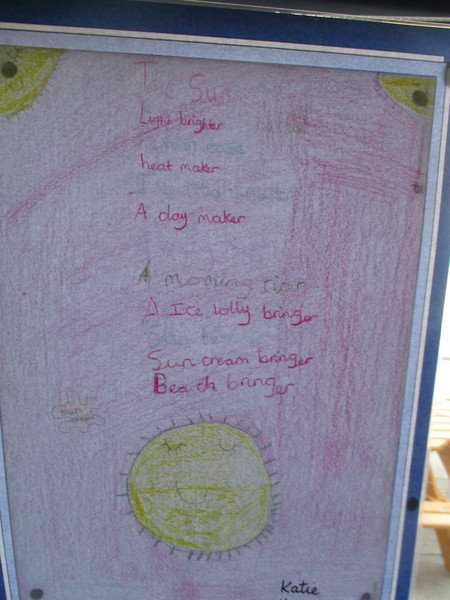 The Sun
Light brighter
heat maker
A day maker
A morning riser
A Ice lolly bringer
Sun cream bringer
Beach bringer
sun
Katie